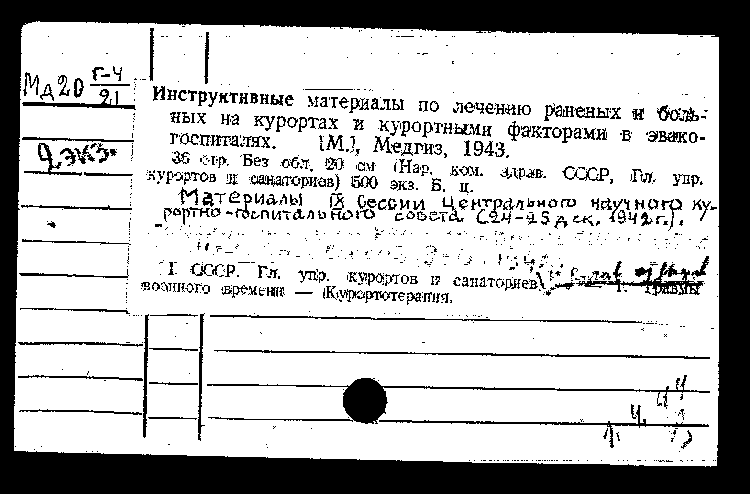 Мд20 Г-4
21
2 экз.
Инструктивные материалы по лечению раненых и боль-
ных на курортах и курортными факторами в эвако-
госпиталях. [М.], Медгиз, 1943.
36 стр. Без обл. 20 см (Нар. ком. здрав. СССР, Гл. упр.
курортов и санаториев) 500 экз. Б. ц.
Материалы IX сессии Центрального научного ку-
рортно-госпитального совета (24-25 дек. 1942 г.).
I. СССР. Гл. упр. курортов и санаториев
1. Травмы
военного времени — Курортотерапия.